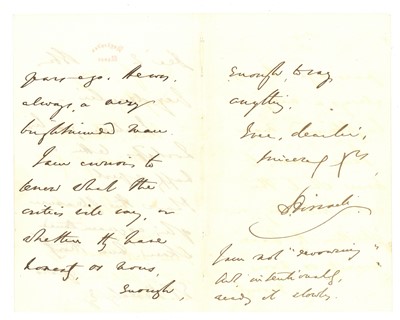 years ago. He was
always, a very
brightminded man.
I am curious to
know what the
critics will say, or
whether they have
honesty, or nous,
enough,
enough, to say
anything.
I me, dear Sir,
sincerely yrs
Disraeli.
I am not "devouring"
but, intentionally,
it slowly.